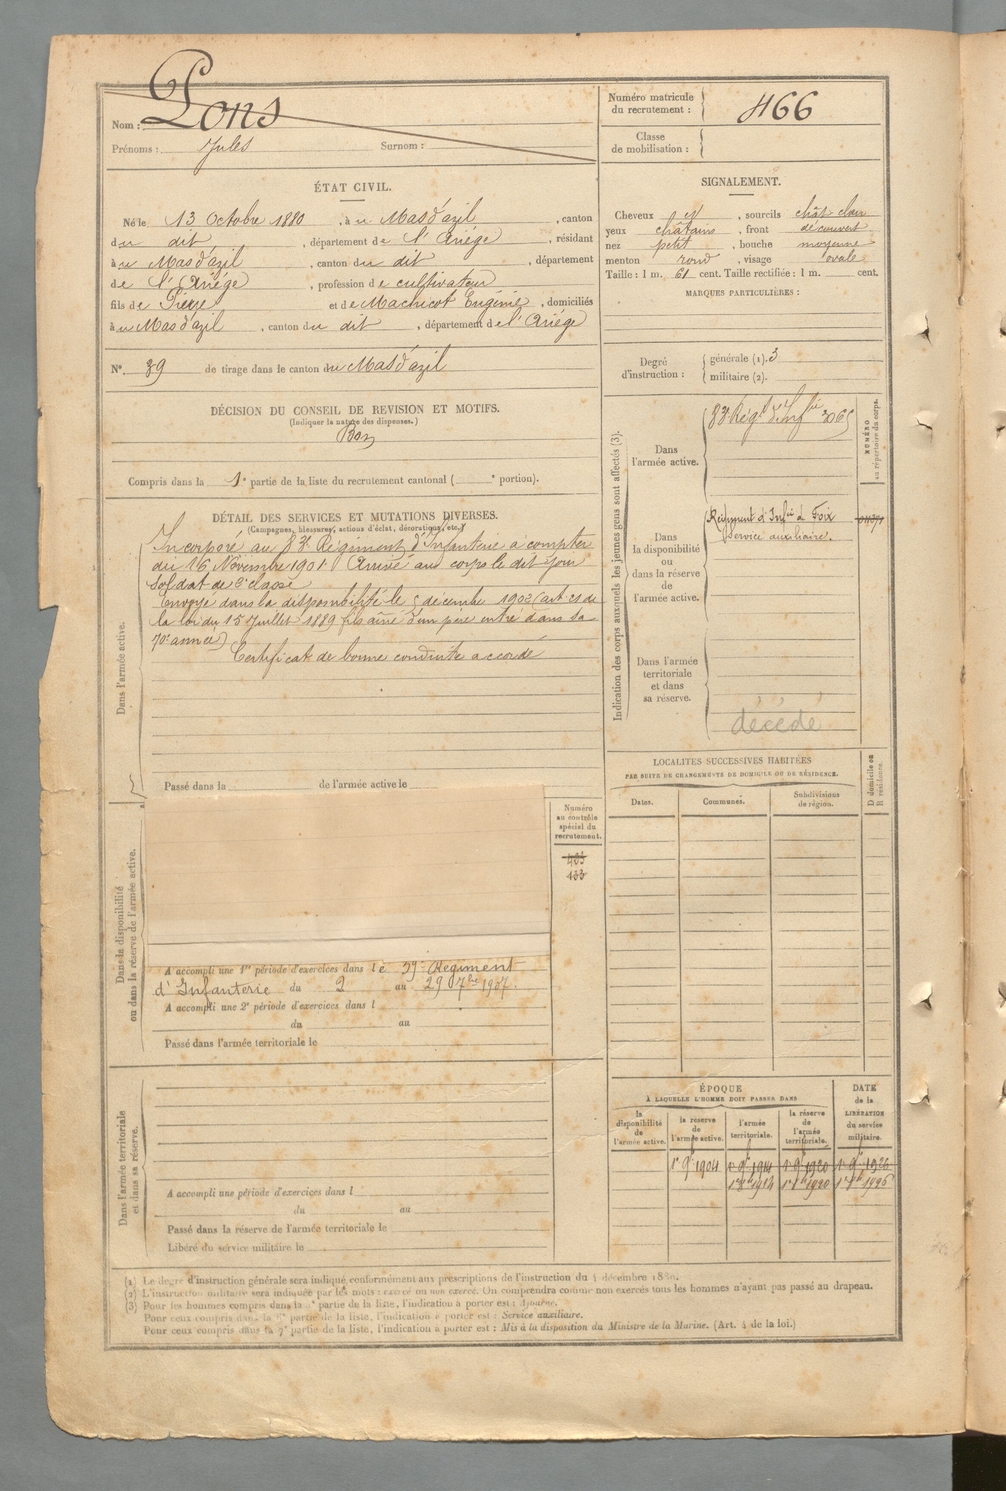 Nom : Pons
Prénoms : Jules Surnom :
Numéro matricule
du recrutement : 466
Classe
de mobilisation :
ÉTAT CIVIL.
Né le 13 Octobre 1880, à u Mas d'azil, canton
du dit, département de l'Ariége, résidant
à u Mas d'azil, canton du dit, département
de l'Ariége, profession de cultivateur
fils de Pierre et de Machicot Eugénie, domiciliés
à u Mas d'azil, canton du dit, département de l'Ariége
N° 39 de tirage dans le canton du Mas d'azil
DÉCISION DU CONSEIL DE REVISION ET MOTIFS.
(Indiquer la nature des dispenses.)
Bon
Compris dans la 1e partie de la liste du recrutement cantonal ( e portion).
SIGNALEMENT.
Cheveux et, sourcils chât clair
yeux châtains, front découvert
nez petit, bouche moyenne
menton rond, visage ovale
Taille : 1 m. 61 cent. Taille rectifiée : 1 m. cent.
MARQUES PARTICULIÈRES :
Degré
d'instruction :
générale (1). 3
militaire (2).
DÉTAIL DES SERVICES ET MUTATIONS DIVERSES.
(Campagnes, blessures, actions d'éclat, décorations, etc.)
Dans l'armée active.
Incorporé au 83e Régiment d'Infanterie à compter
du 16 Novembre 1901 Arrivé au corps le dit jour
soldat de 2e classe
Envoyé dans la disponibilité le 5 décembre 1902 (art 21 de
la loi du 15 Juillet 1889 fils aîné d'un père entré dans sa
70e année)
Certificat de bonne conduite accordé
Passé dans la de l'armée active le
Indication des corps auxquels les jeunes gens sont affectés (3).
NUMÉRO
au répertoire du corps.
Dans
l'armée active.
83e Régt d'Infie 3065
Dans
la disponibilité
ou
dans la réserve
de
l'armée active.
Régiment d'Infie de Foix
Service auxiliaire.
Dans l'armée
territoriale
et dans
sa réserve.
décédé
LOCALITÉS SUCCESSIVES HABITÉES
PAR SUITE DE CHANGEMENTS DE DOMICILE OU DE RÉSIDENCE.
Dates.
Communes.
Subdivisions
de région.
D domicile ou
R résidence.
Dans la disponibilité
ou dans la réserve de l'armée active.
Numéro
au contrôle
spécial du
recrutement.
133
A accompli une 1re période d'exercices dans le 59e Régiment
d'Infanterie du 2 au 29 7bre 1907.
A accompli une 2e période d'exercices dans l
du au
Passé dans l'armée territoriale le
Dans l'armée territoriale
et dans sa réserve.
A accompli une période d'exercices dans l
du au
Passé dans la réserve de l'armée territoriale le
Libéré du service militaire le
ÉPOQUE
À LAQUELLE L'HOMME DOIT PASSER DANS
DATE
de la
LIBÉRATION
du service
militaire.
la
disponibilité
de
l'armée active.
la réserve
de
l'armée active.
l'armée
territoriale.
la réserve
de
l'armée
territoriale.
1er 9bre 1904 1er 9bre 1914 1er 9bre 1920 1er 9bre 1926
(1) Le degré d'instruction générale sera indiqué conformément aux prescriptions de l'instruction du 4 décembre 1889.
(2) L'instruction militaire sera indiquée par les mots : exercé ou non exercé. On comprendra comme non exercés tous les hommes n'ayant pas passé au drapeau.
(3) Pour les hommes compris dans la partie de la liste, l'indication à porter est : Ajourné.
Pour ceux compris dans la partie de la liste, l'indication à porter est : Service auxiliaire.
Pour ceux compris dans la 7e partie de la liste, l'indication à porter est : Mis à la disposition du Ministre de la Marine. (Art. 4 de la loi.)